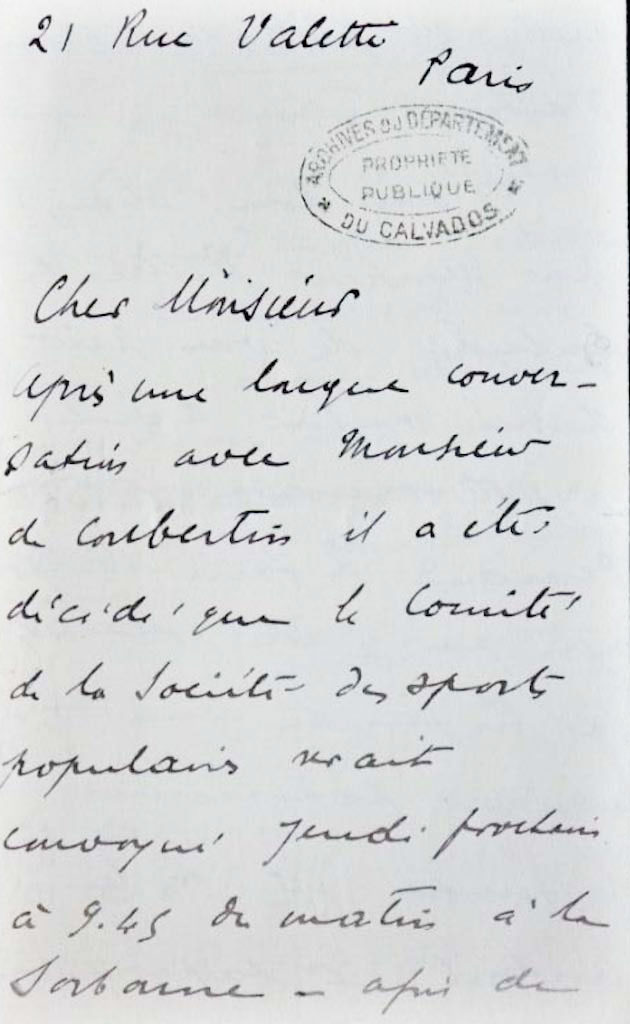 21 Rue Valette
Paris
ARCHIVES DU DÉPARTEMENT
PROPRIÉTÉ
PUBLIQUE
DU CALVADOS
Cher Monsieur
après une longue conver-
sation avec Monsieur
de Coubertin il a été
décidé que le Comité
de la Société des sports
populaires serait
convoqué jeudi prochain
à 9.45 du matin à la
Sorbonne - afin de